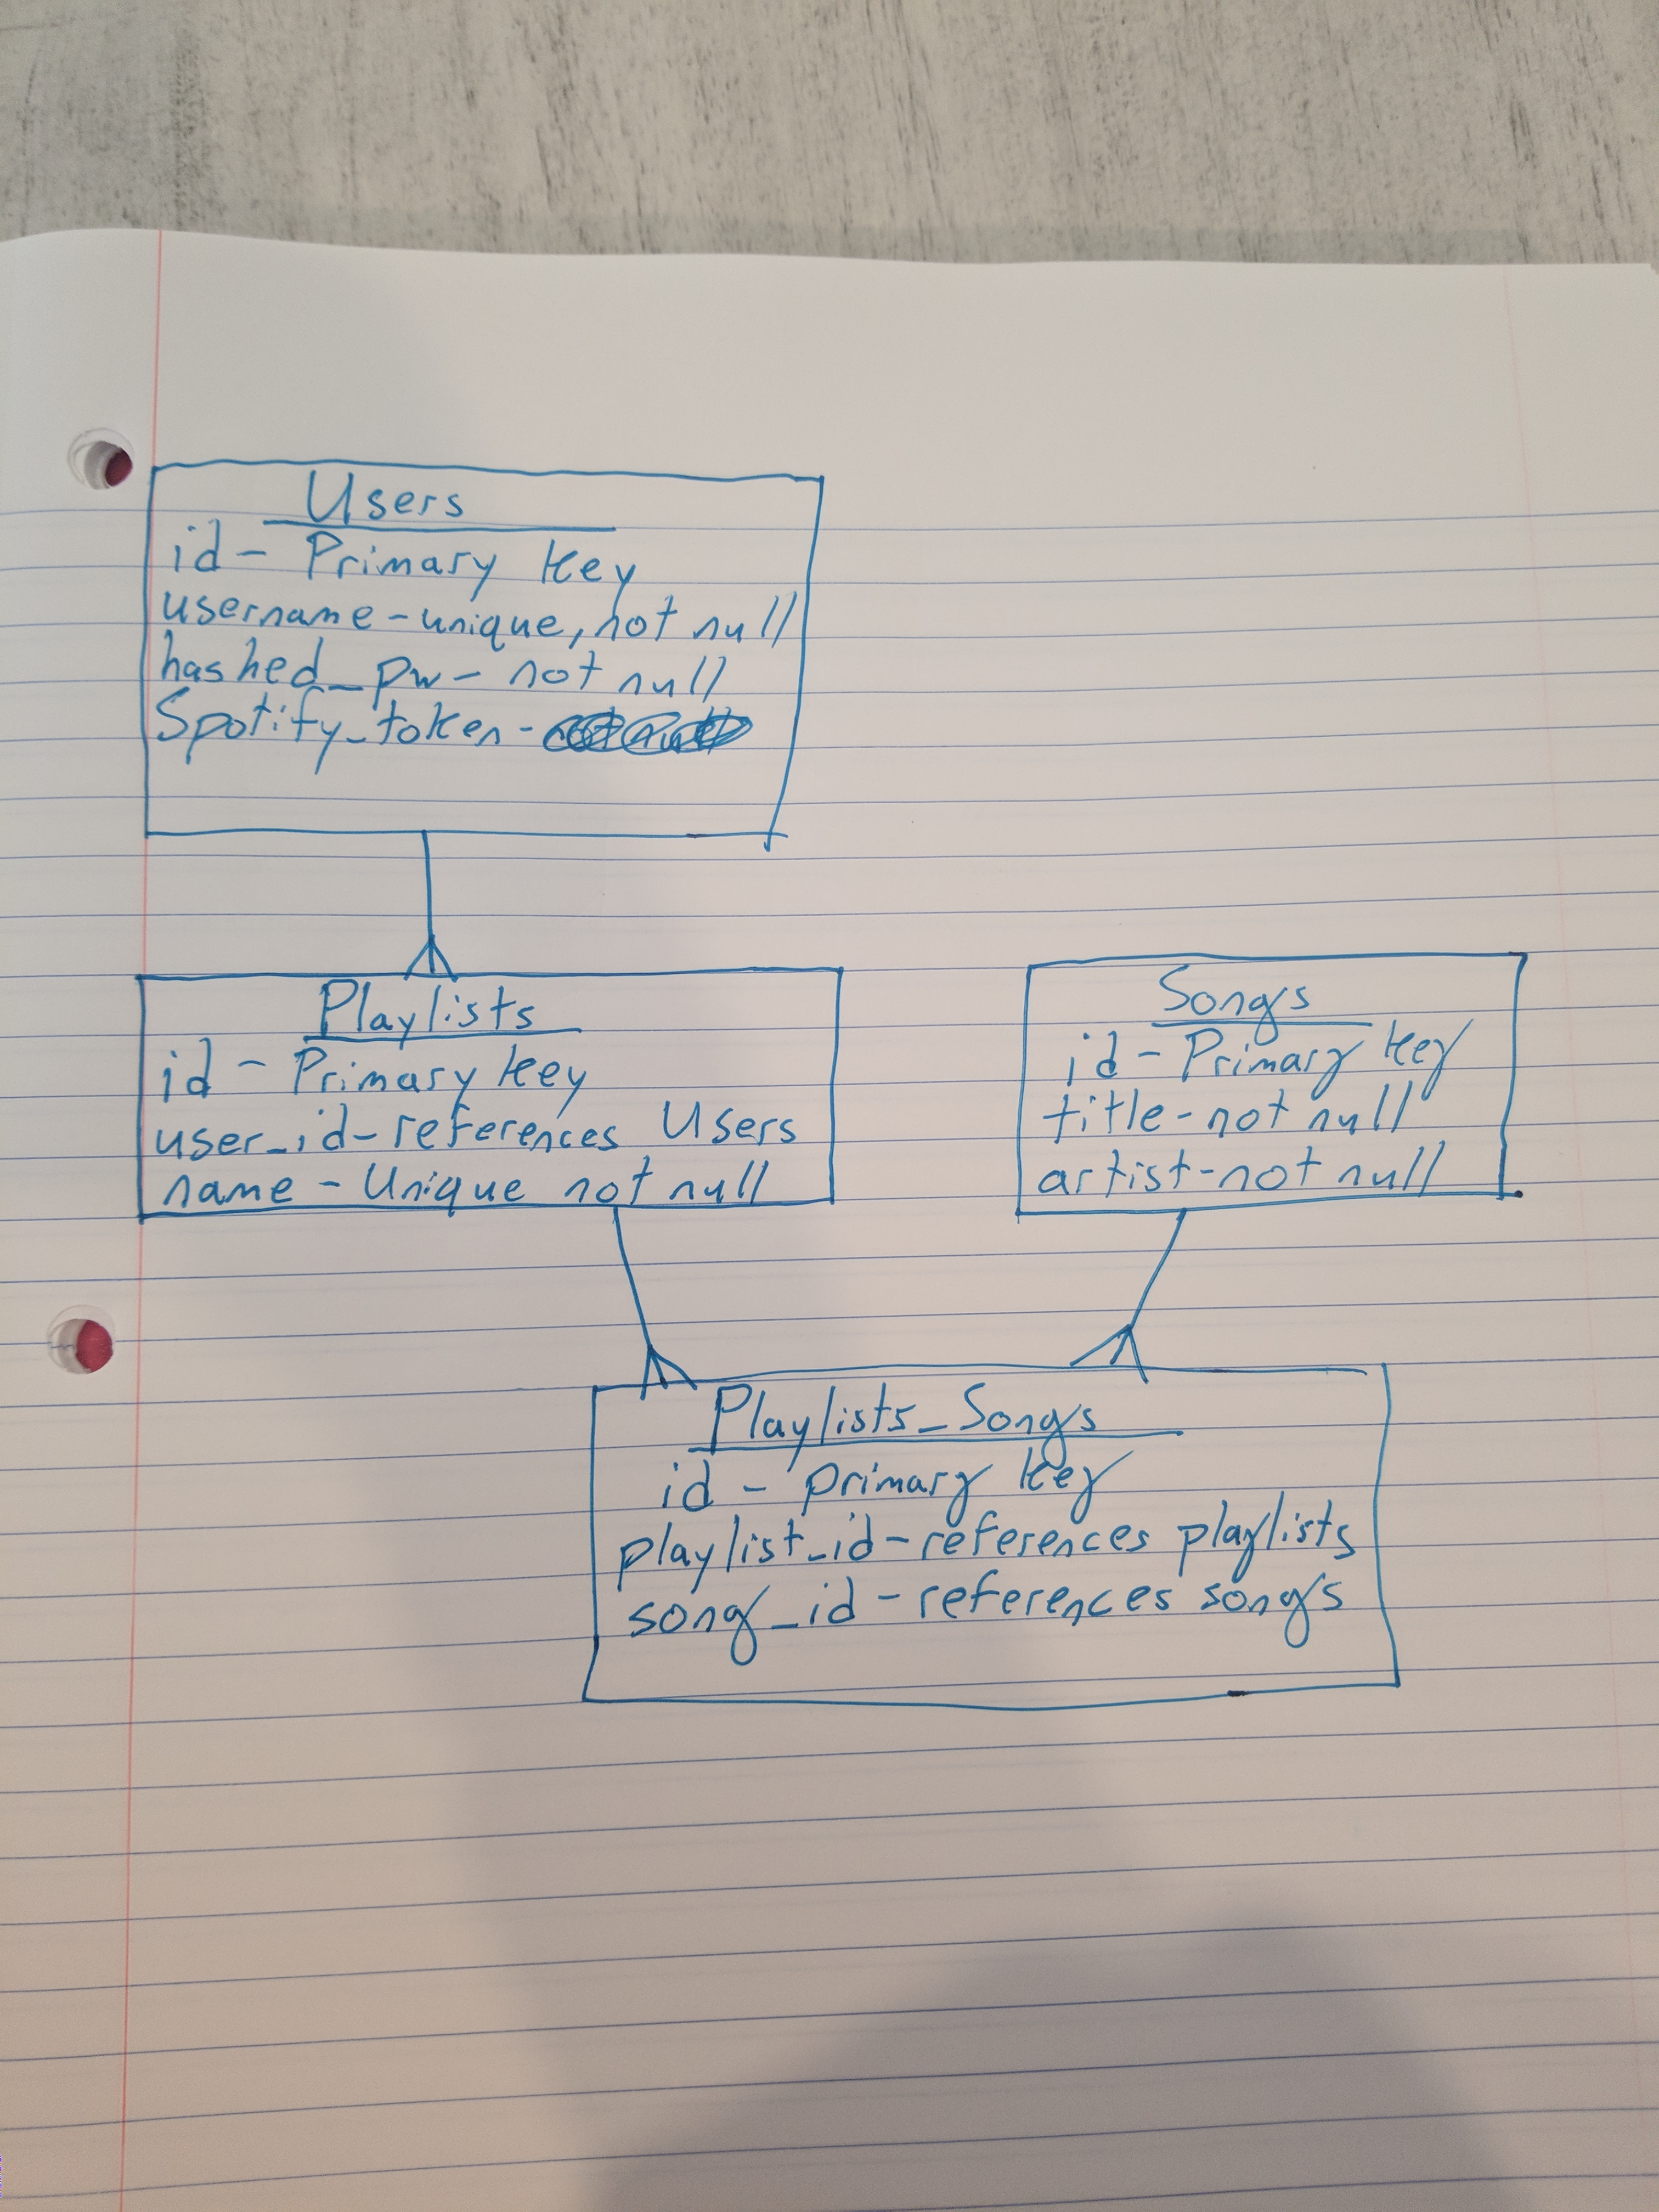 Users
id - Primary Key
username - unique, not null
hashed_pw - not null
Spotify_token -
Playlists
id - Primary Key
user_id - references Users
name - Unique not null
Songs
id - Primary Key
title - not null
artist - not null
Playlists_Songs
id - primary key
playlist_id - references playlists
song_id - references songs